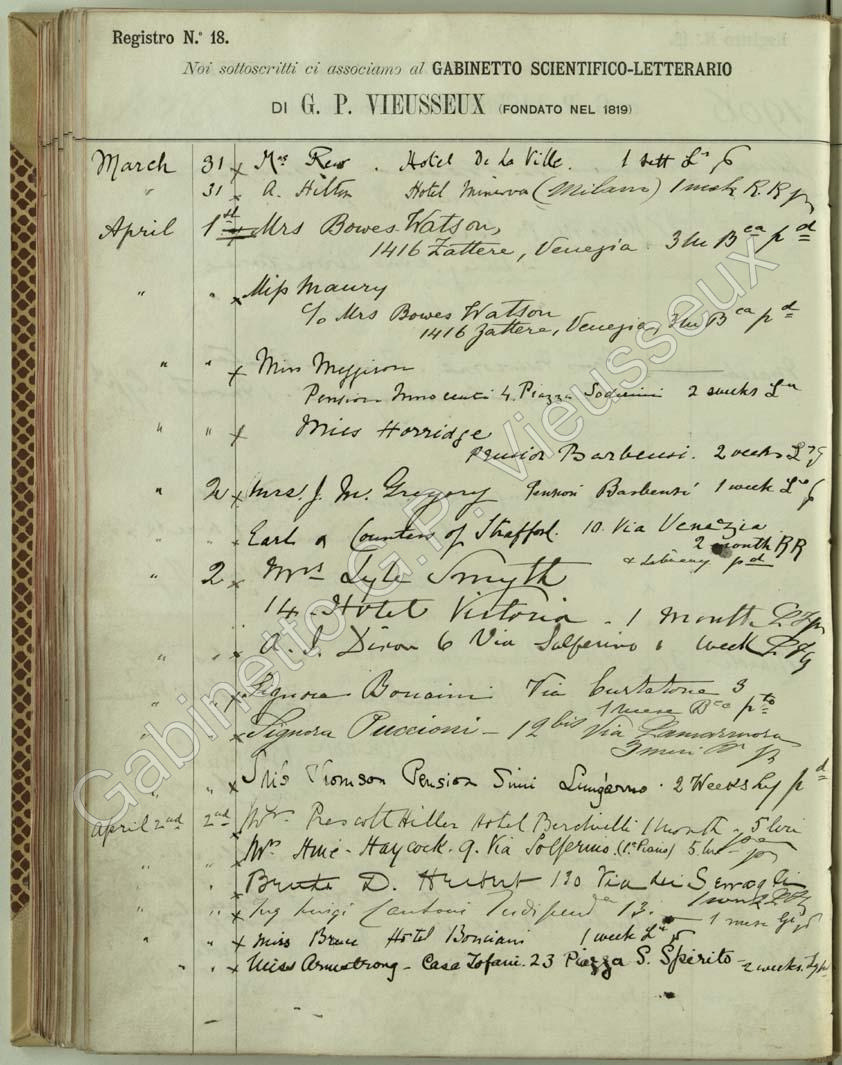 Registro N.º 18.
Noi sottoscritti ci associamo al GABINETTO SCIENTIFICO-LETTERARIO
DI G. P. VIEUSSEUX (FONDATO NEL 1819)
March 31 x Mrs . Hotel De La Ville. 1 sett
" 31 x A. Hilton Hotel Minerva (Milano) 1 R. R
April 1st x Mrs Bowes Watson,
1416 Zattere, Venezia. 3 M Bca pd
" " x Miss Maury
c/o Mrs Bowes Watson
1416 Zattere, Venezia, 3 M Bca pd
" " x Miss
Pension Innocenti 4 Piazza Soderini 2 weeks
" " x Miss Horridge
Pension Barbensi. 2 weeks
" 2 x Mrs. J. M. Gregory Pension Barbensi 1 week
" " x Earl & Countess of Strafford. 10 Via Venezia
2 month RR
& Library pd
" 2 x Mrs Lyle Smyth
14 Hotel Victoria - 1 month
" " x A. J. Dixon 6 Via Solferino 1 week
" " x Signora Via Curtatone 3
1 mese Bca pto
" " x Signora Puccioni - 12 bis Via Lamarmora
3 mesi
" " x Thomson Pension Simi Lungarno. 2 Weeks pd
April 2nd 2nd x Mrs. Prescott Hiller Hotel 1 month - 5 lire
" " x Mrs - Haycock. 9. Via Solferino. (1o Piano) 5 lire -
" " x D. Herbert 130 Via dei Serragli
" " x Ing Luigi Cantoni 13. - 1 mese
" " x Miss Bruce Hotel Bonciani 1 week
" " x Miss Armstrong - Casa Tofani. 23 Piazza S. Spirito - 2 weeks.
Gabinetto G.P. Vieusseux